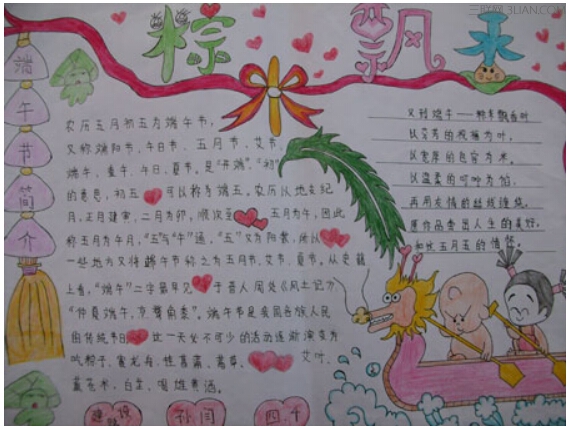 三联网 3LIAN.COM
粽 飘 香
端午节简介
农历五月初五为端午节，
又称端阳节、午日节、五月节、艾节、
端午、重午、午日、夏节。是"开端"、"初"
的意思，初五可以称为端五。农历以地支纪
月，正月建寅，二月为卯，顺次至五月为午，因此
称五月为午月，"五"与"午"通，"五"又为阳数，所以
一些地方又将端午节称之为五月节、艾节、夏节。从史籍
上看，"端午"二字最早见于晋人周处《风土记》
"仲夏端午，烹鹜角黍"。端午节是我国各族人民
的传统节日，这一天必不可少的活动逐渐演变为
吃粽子、赛龙舟、挂菖蒲、蒿草、艾叶、
薰苍术、白芷、喝雄黄酒。
又到端午——粽香飘香叶
以芬芳的祝福为叶，
以宽厚的包容为米，
以温柔的叮咛为馅，
再用友情的丝线缠绕，
愿你品尝出人生的美好，
和这五月五的情怀。
孙闫
四、千